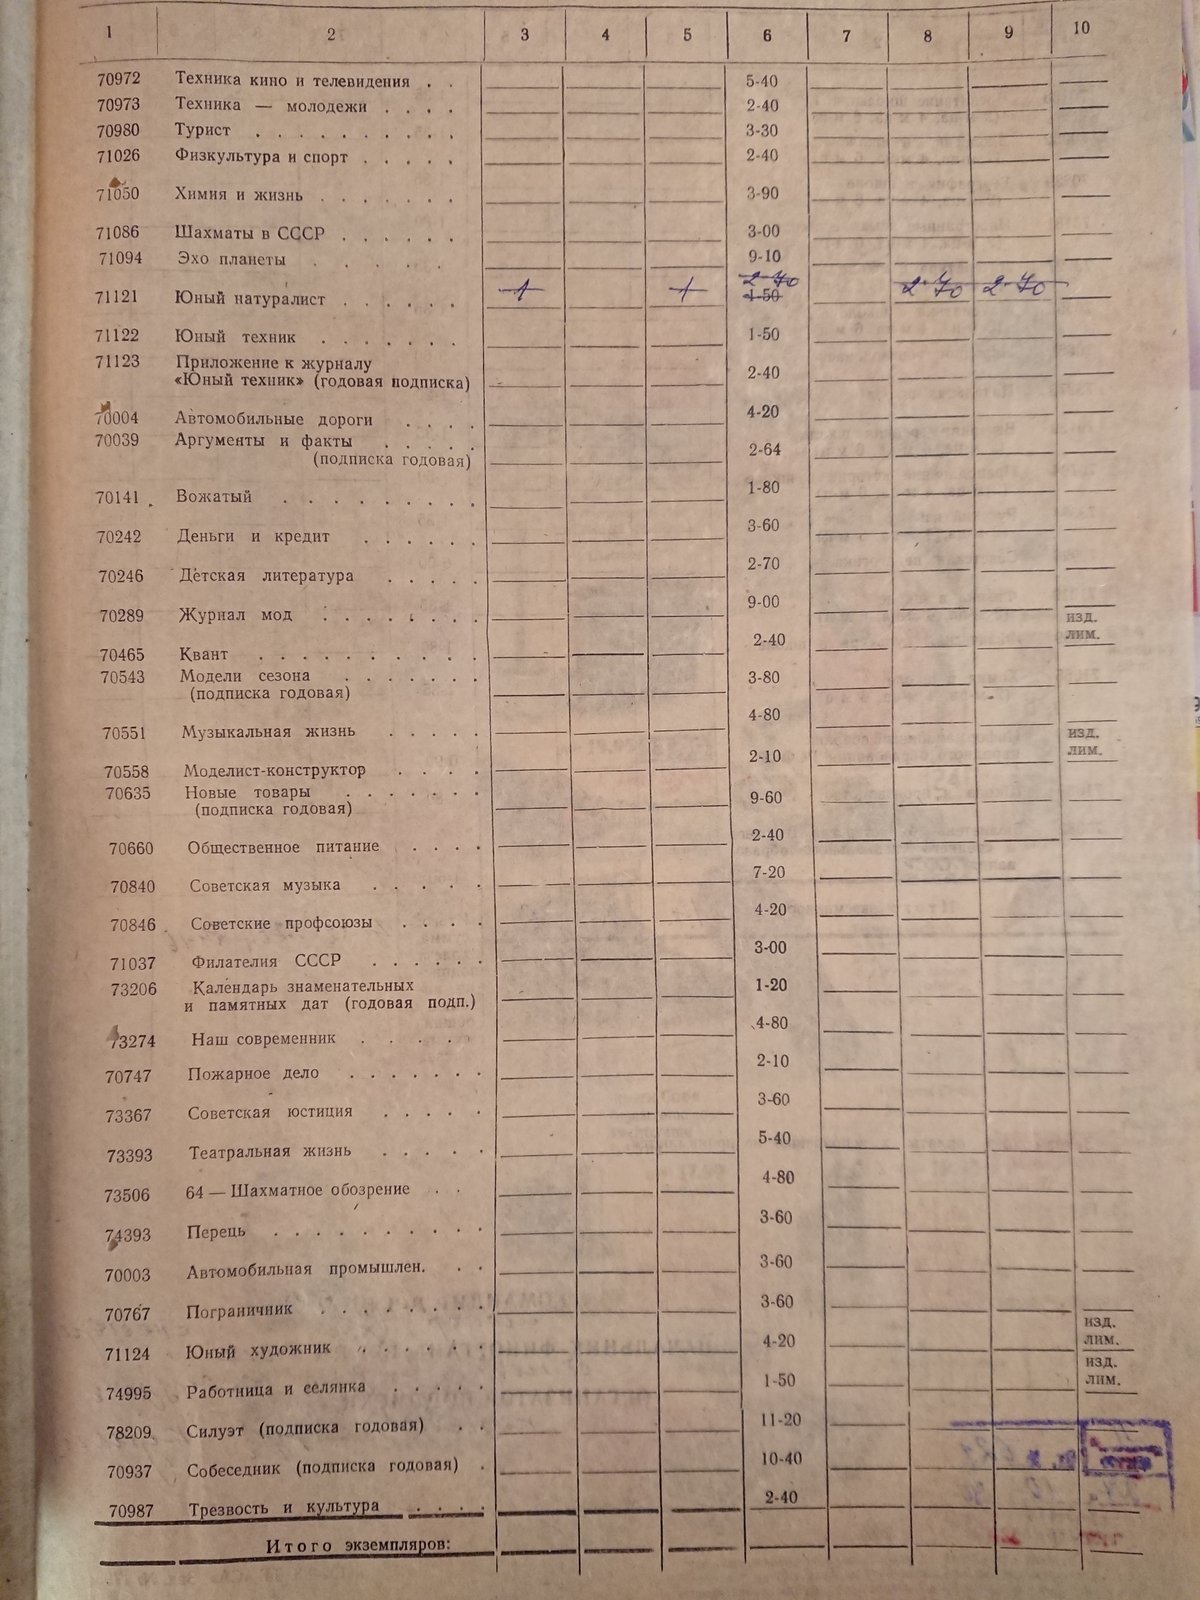 1 2 3 4 5 6 7 8 9 10
70972 Техника кино и телевидения . . 5-40
70973 Техника — молодежи . . . . 2-40
70980 Турист . . . . . . . . . . 3-30
71026 Физкультура и спорт . . . . . 2-40
71050 Химия и жизнь . . . . . . . 3-90
71086 Шахматы в СССР . . . . . . 3-00
71094 Эхо планеты . . . . . 9-10
2-70
71121 Юный натуралист . . . . . . 1 1-50 2-70 2-70
71122 Юный техник . . . . . . . 1-50
71123 Приложение к журналу
«Юный техник» (годовая подписка) 2-40
70004 Автомобильные дороги . . . . 4-20
70039 Аргументы и факты . . . . .
(подписка годовая) 2-64
70141 Вожатый . . . . . . . . . 1-80
70242 Деньги и кредит . . . . . . 3-60
70246 Детская литература . . . . . 2-70
70289 Журнал мод . . . . . . . . 9-00 изд.
лим.
70465 Квант . . . . . . . . . . 2-40
70543 Модели сезона . . . . . . . 3-80
(подписка годовая)
70551 Музыкальная жизнь . . . . . 4-80 изд.
лим.
70558 Моделист-конструктор . . . . 2-10
70635 Новые товары . . . . . . . 9-60
(подписка годовая)
70660 Общественное питание . . . . 2-40
70840 Советская музыка . . . . . 7-20
70846 Советские профсоюзы . . . . 4-20
71037 Филателия СССР . . . . . . 3-00
73206 Календарь знаменательных 1-20
и памятных дат (годовая подп.)
73274 Наш современник . . . . 4-80
70747 Пожарное дело . . . . . . . 2-10
73367 Советская юстиция . . . . . 3-60
73393 Театральная жизнь . . . . . 5-40
73506 64 — Шахматное обозрение . . 4-80
74393 Перець . . . . . . . . . . 3-60
70003 Автомобильная промышлен. . . 3-60
70767 Пограничник . . . . . . . . 3-60
изд.
71124 Юный художник . . . . . . 4-20 лим.
изд.
74995 Работница и селянка . . . . . 1-50 лим.
78209 Силуэт (подписка годовая) . . 11-20
70937 Собеседник (подписка годовая) . 10-40
70987 Трезвость и культура . . . . 2-40
Итого экземпляров: